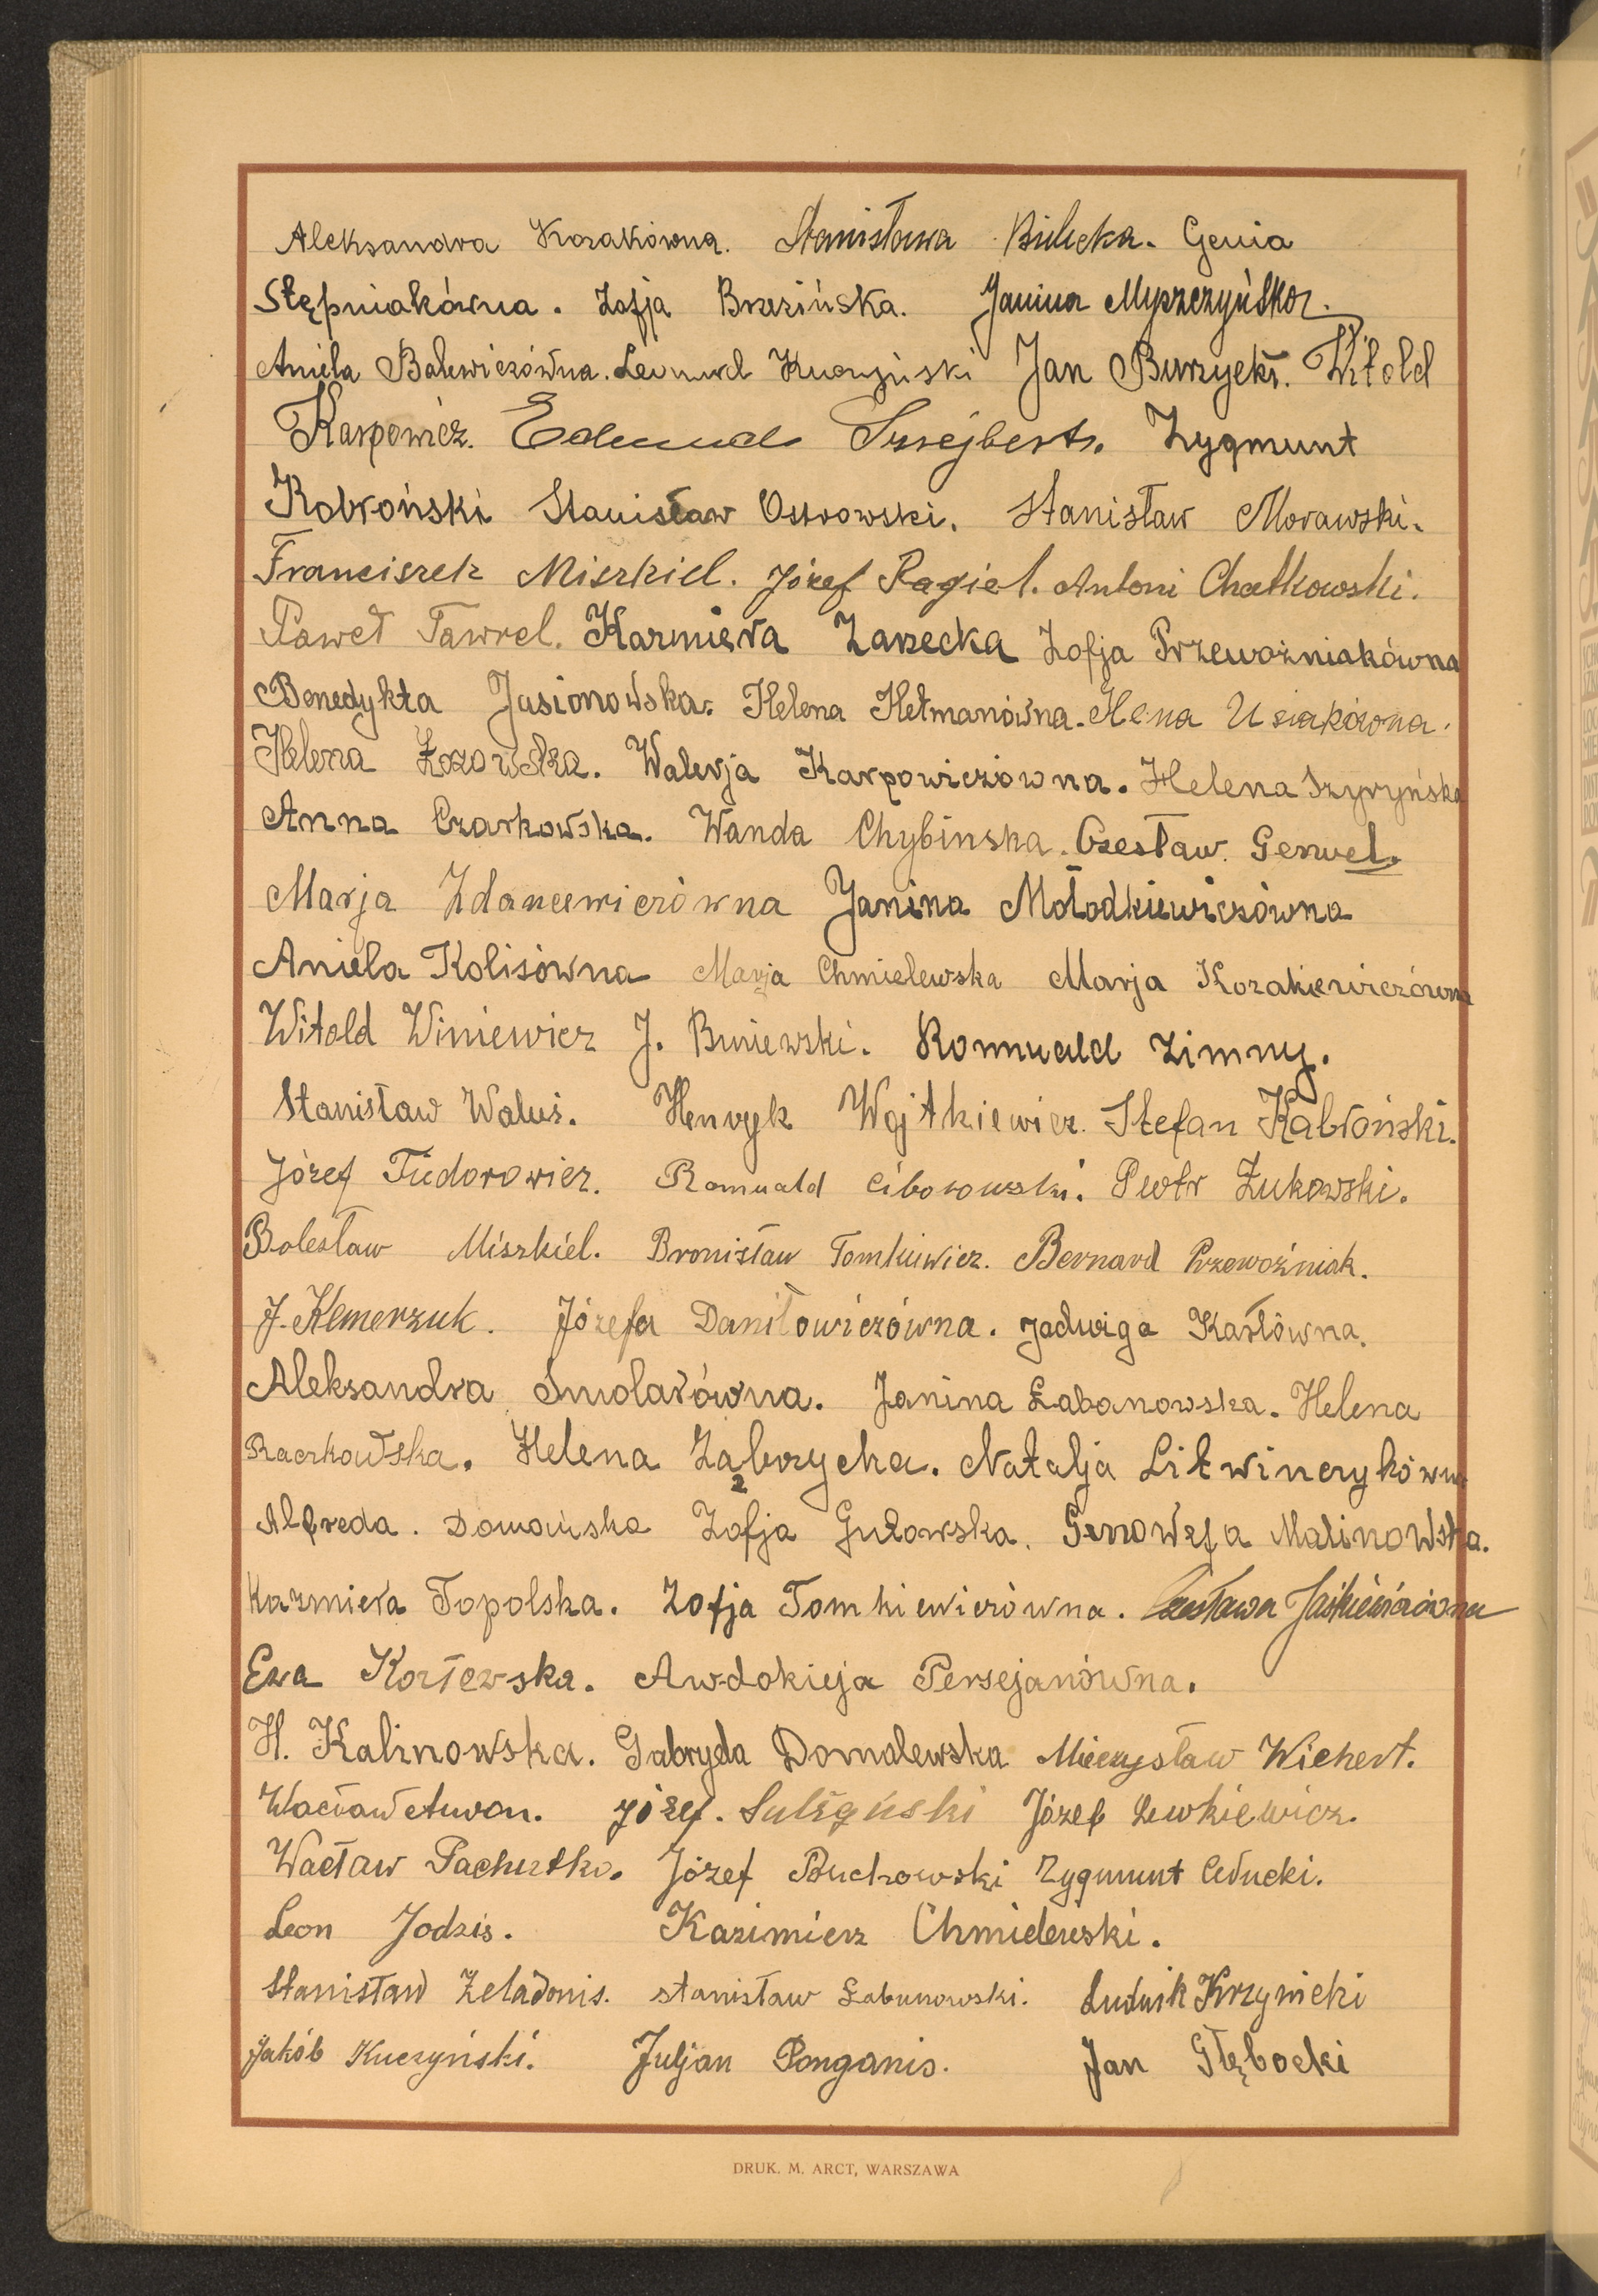 Aleksandra Kozakówna. Stanisława Bielecka. Genia
Stępniakówna. Zofja Brzezińska. Janina Myszczyńska.
Aniela Balewiczówna. Leonard Kuczyński Jan Burzycki. Witold
Karpowicz. Edmund Szrejberts. Zygmunt
Kobroński Stanisław Ostrowski. Stanisław Morawski.
Franciszek Miszkiel. Józef Ragiel. Antoni Chatkowski.
Paweł Tawrel. Kazmiera Zarzecka Zofja Przewoźniakówna
Benedykta Jasionowska. Helena Hetmanówna. Hena Usiakówna.
Helena Łozowska. Walerja Karpowiczówna. Helena Szyryńska
Anna Czarkowska. Wanda Chybinska. Czesław. Gerwel.
Marja Zdancewiczówna Janina Mołodkiewiczówna
Aniela Kolisówna Marja Chmielewska Marja Kozakiewiczówna
Witold Winiewicz J. Buniewski. Romuald Zimny.
Stanisław Waluś. Henryk Wojtkiewicz. Stefan Kabroński.
Józef Fiedorowicz. Romuald Ciborowski. Piotr Żukowski.
Bolesław Miszkiel. Bronisław Tomkiewicz. Bernard Przewoźniak.
J. Klemerzuk. Józefa Daniłowiczówna. Jadwiga Kasłówna.
Aleksandra Smolarówna. Janina Łabanowska. Helena
Raczkowska. Helena Zabrzycka. Natalja Litwinczykówna
Alfreda. Domańska Zofja Gutowska. Genowefa Malinowska.
Kazmiera Topolska. Zofja Tomkiewiczówna. Czesława Jaśkiewiczówna
Ewa Kozłewska. Awdokieja Persejanówna.
H. Kalinowska. Gabryela Domalewska Mieczysław Wichert.
Wacław Awon. Józef. Suliginski Józef Lewkiewicz.
Wacław Pachutko. Józef Puchowski Zygmunt Cełucki.
Leon Jodzis. Kazimierz Chmielewski.
Stanisław Żeladonis. Stanisław Łabunowski. Ludwik Krzywicki
Jakób Kuczyński. Juljan Ponganis. Jan Głębocki
DRUK. M. ARCT, WARSZAWA